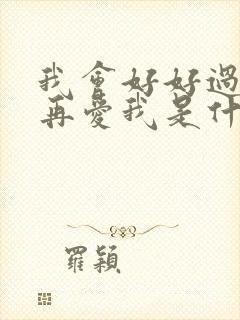 我會好好過
再愛我是什
羅穎